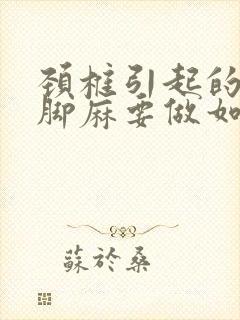 頚椎引起的
脚麻要做如
蘇於桑